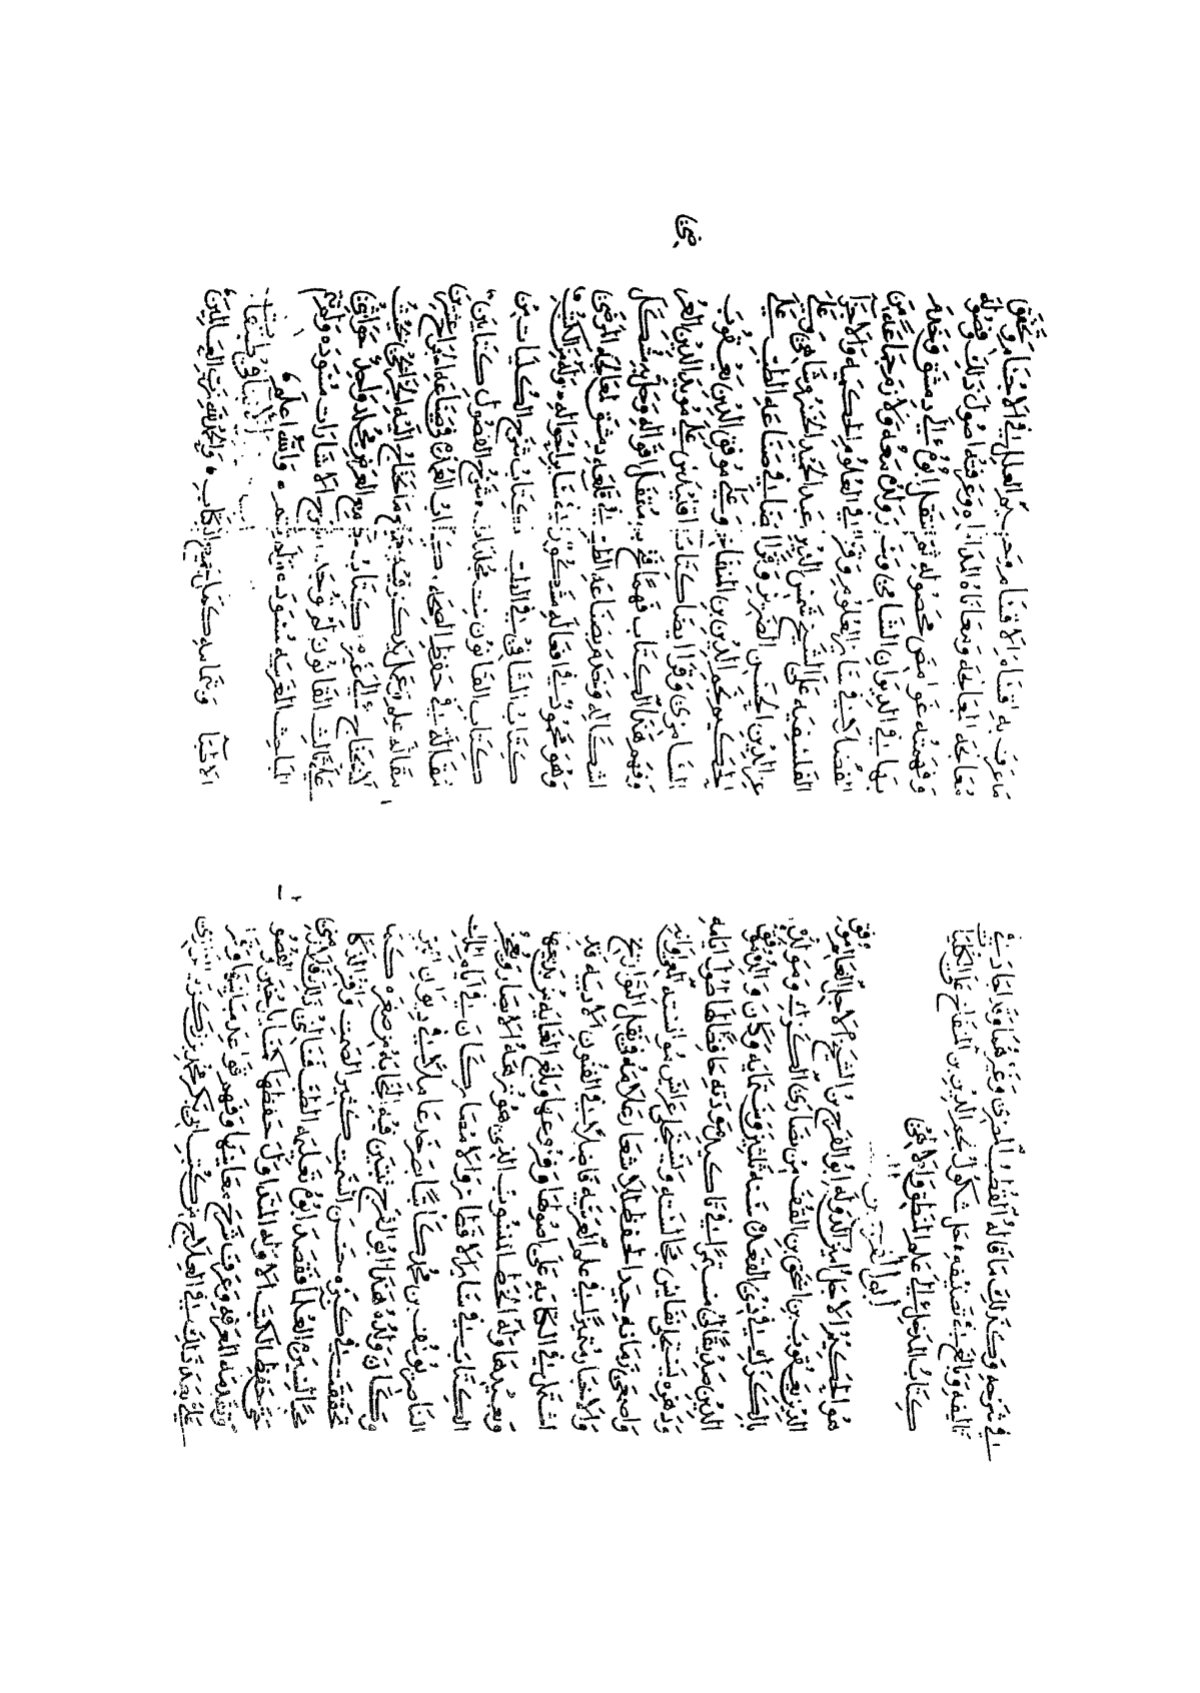 في شرحه وكذلك ما قاله القطب المصري وغيرهما وقد اجاد في
تاليفه وبالغ في تصنيفه حل شكوك نجم الدين بن المنفاخ على الكليات
كتاب المدخل الى علم المنطق والالهي
ابو الفرج بن
هو الحكيم الاجل امين الدوله ابو الفرج بن الشيخ الاجل العالم موفق
الدين يعقوب بن اسحق بن القف من نصارى الكرك ومولده
بالكرك في ذي القعدة سنه ثلثين وستمايه وكان والده موفق
الدين صديقا لي مستمرا في تاكيد مودته حافظا لها طول ايامه
ودهره تستحلى نفايس مجالسته وتستجلى عرايس موانسته المعي اوانه
واصمعي زمانه جيد الحفظ للاشعار علامه في نقل التواريخ
والاخبار متميزا في علم العربيه فاضلا في الفنون الادبيه قد
اشتمل في الكتابه على اصولها وفروعها وبلغ الغايه من بديعها
وبعيدها وله الخط المنسوب الذي هو نزهة الابصار ويعجز
الكتاب في ساير الاقطار والامصار كان في ايام الملك
الناصر يوسف بن محمد كاتبا بصرخد عاملا في ديوان البر
وكان ولده هذا ابو الفرج تتبين فيه النجابه من صغره كما
تحققت في كبره حسن السمت كثير الصمت وافر الذكا
محبا لسيرة العلما فقصد ابوه تعليمه الطب فسالني ذلك فلازمني
حتى حفظ الكتب الاوله المتداول حفظها كمسايل حنين والفصول
وتقدمه المعرفه وعرف شرح معانيها وفهم قواعد مبانيها وقرا
علي بعد ذلك في العلاج من كتب ابي بكر محمد بن زكريا الرازي
ضي
ما عرف به اقسام الاسقام وجسيم العلل في الاجسام وتحقق
معالجه المعالجه ومعاناه المداواه وعرفته اصول ذلك وفصوله
وفهمته غوامضه ومحصوله ثم انتقل ابوه الى دمشق وخدم
بها في الديوان السامي وسار ولده معه ولازم جماعه من
الفضلا في ساير العلوم وقرا في العلوم الحكميه والاجزا
الفلسفيه على الشيخ شمس الدين عبد الحميد الخسروشاهي وعلى
عز الدين الحسن الضرير وقرا ايضا في صناعه الطب على
الحكيم نجم الدين بن المنفاخ وعلى موفق الدين يعقوب
السامري وقرا ايضا كتاب اقليدس على مويد الدين العرضي
وفهم هذا الكتاب فهما فتح به مقفل اقواله وحل مشكل
اشكاله وخدم بصناعه الطب في قلعه دمشق لمعالجه المرضى
وهو محمود في افعاله مشكور في ساير احواله وله من الكتب
كتاب الشافي في الطب كتاب شرح الكليات من
كتاب القانون ست مجلدات شرح الفصول كتابين
مقاله في حفظ الصحه كتاب العمده في صناعه الجراح عشرين
مقاله علم وعمل يذكر فيه جميع ما يحتاج اليه الجرايحي بحيث
لا يحتاج الى غيره كتاب جامع الغرض مجلد واحد حواشي
على ثالث القانون لم توجد شرح الاشارات مسوده ولم يتم
المباحث المغربيه مسوده ولم يتم والله اعلم
الانبا في طبقات
الاطبا وبتمامه كمل جميع الكتاب والحمد لله رب العالمين